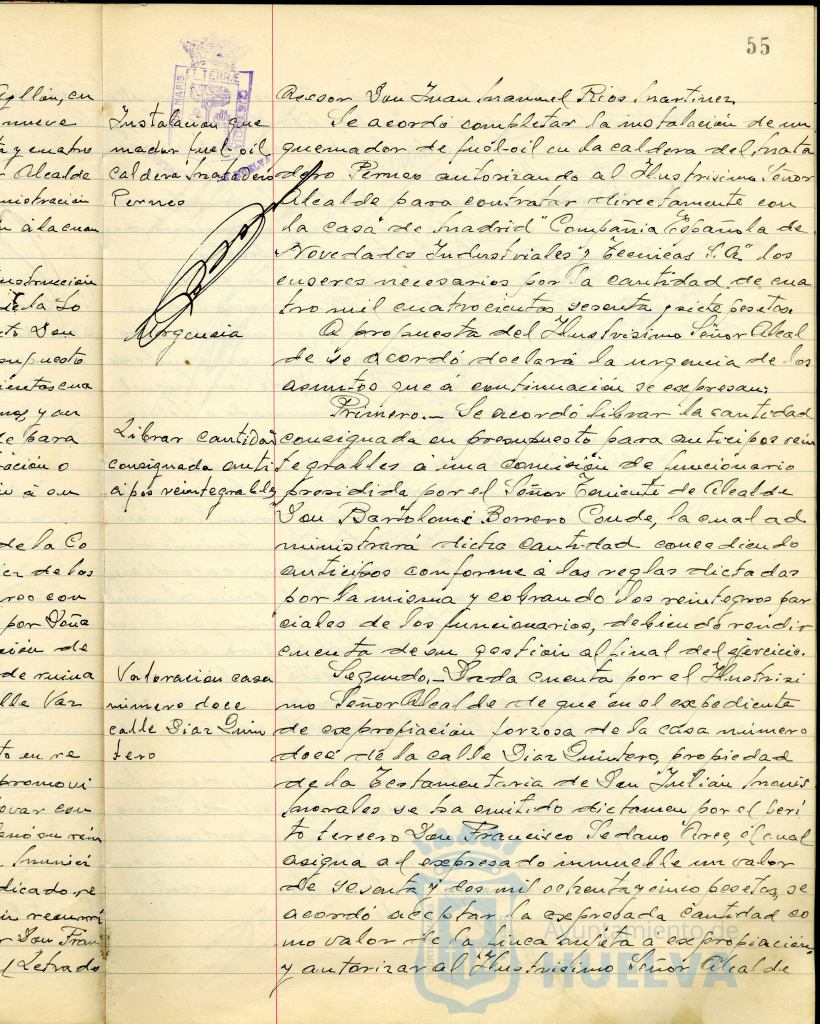 55
Ayllón, en
nueve
ta y cuatro
r Alcalde
ministración
n á la cuan
nstrucción
de la So
cto Don
supuesto
mientos cua
nos, y en
de para
ración o
n á su
de la Co
ica de los
reo con
por Doña
ción de
de ruina
lle Vaz
to en re
promovi
ovar con
enó su rein
Munici
dicado, re
in recurri
r Don Fran
l Letrado
MARIS
ET TERRE
HUELVA
Instalación que
mador fuel-oil
caldera Matadero
Perneo
Urgencia
Librar cantidad
consignada anti
cipos reintegrables
Valoración casa
número doce
calle Diaz Quin
tero
Asesor Don Juan Manuel Rios Martinez.
Se acordó completar la instalación de un
quemador de fuél-oil en la caldera del Mata
dero Perneo autorizando al Ilustrisimo Señor
Alcalde para contratar directamente con
la casa de Madrid "Compañia Española de
Novedades Industriales y Tecnicas S.A." los
enseres necesarios por la cantidad de cua
tro mil cuatrocientas sesenta y siete pesetas.
A propuesta del Ilustrisimo Señor Alcal
de se acordó declará la urgencia de los
asuntos que á continuación se expresan:
Primero.- Se acordó librar la cantidad
consignada en presupuesto para anticipos rein
tegrables á una comisión de funcionario
presidida por el Señor Teniente de Alcalde
Don Bartolomé Borrero Conde, la cual ad
ministrará dicha cantidad concediendo
anticipos conforme á las reglas dictadas
por la misma y cobrando los reintegros par
ciales de los funcionarios, debiendo rendir
cuenta de su gestión al final del ejercicio.
Segundo.- Dada cuenta por el Ilustrisi
mo Señor Alcalde de que en el expediente
de expropiación forzosa de la casa número
doce de la calle Diaz Quintero, propiedad
de la Testamentaria de Don Julián
Morales se ha emitido dictamen por el peri
to tercero Don Francisco Sedano Arce, el cual
asigna al expresado inmueble un valor
de sesenta y dos mil ochenta y cinco pesetas, se
acordó aceptar la expresada cantidad co
mo valor de la finca sujeta a expropiación,
y autorizar al Ilustrisimo Señor Alcalde
Ayuntamiento de
HUELVA